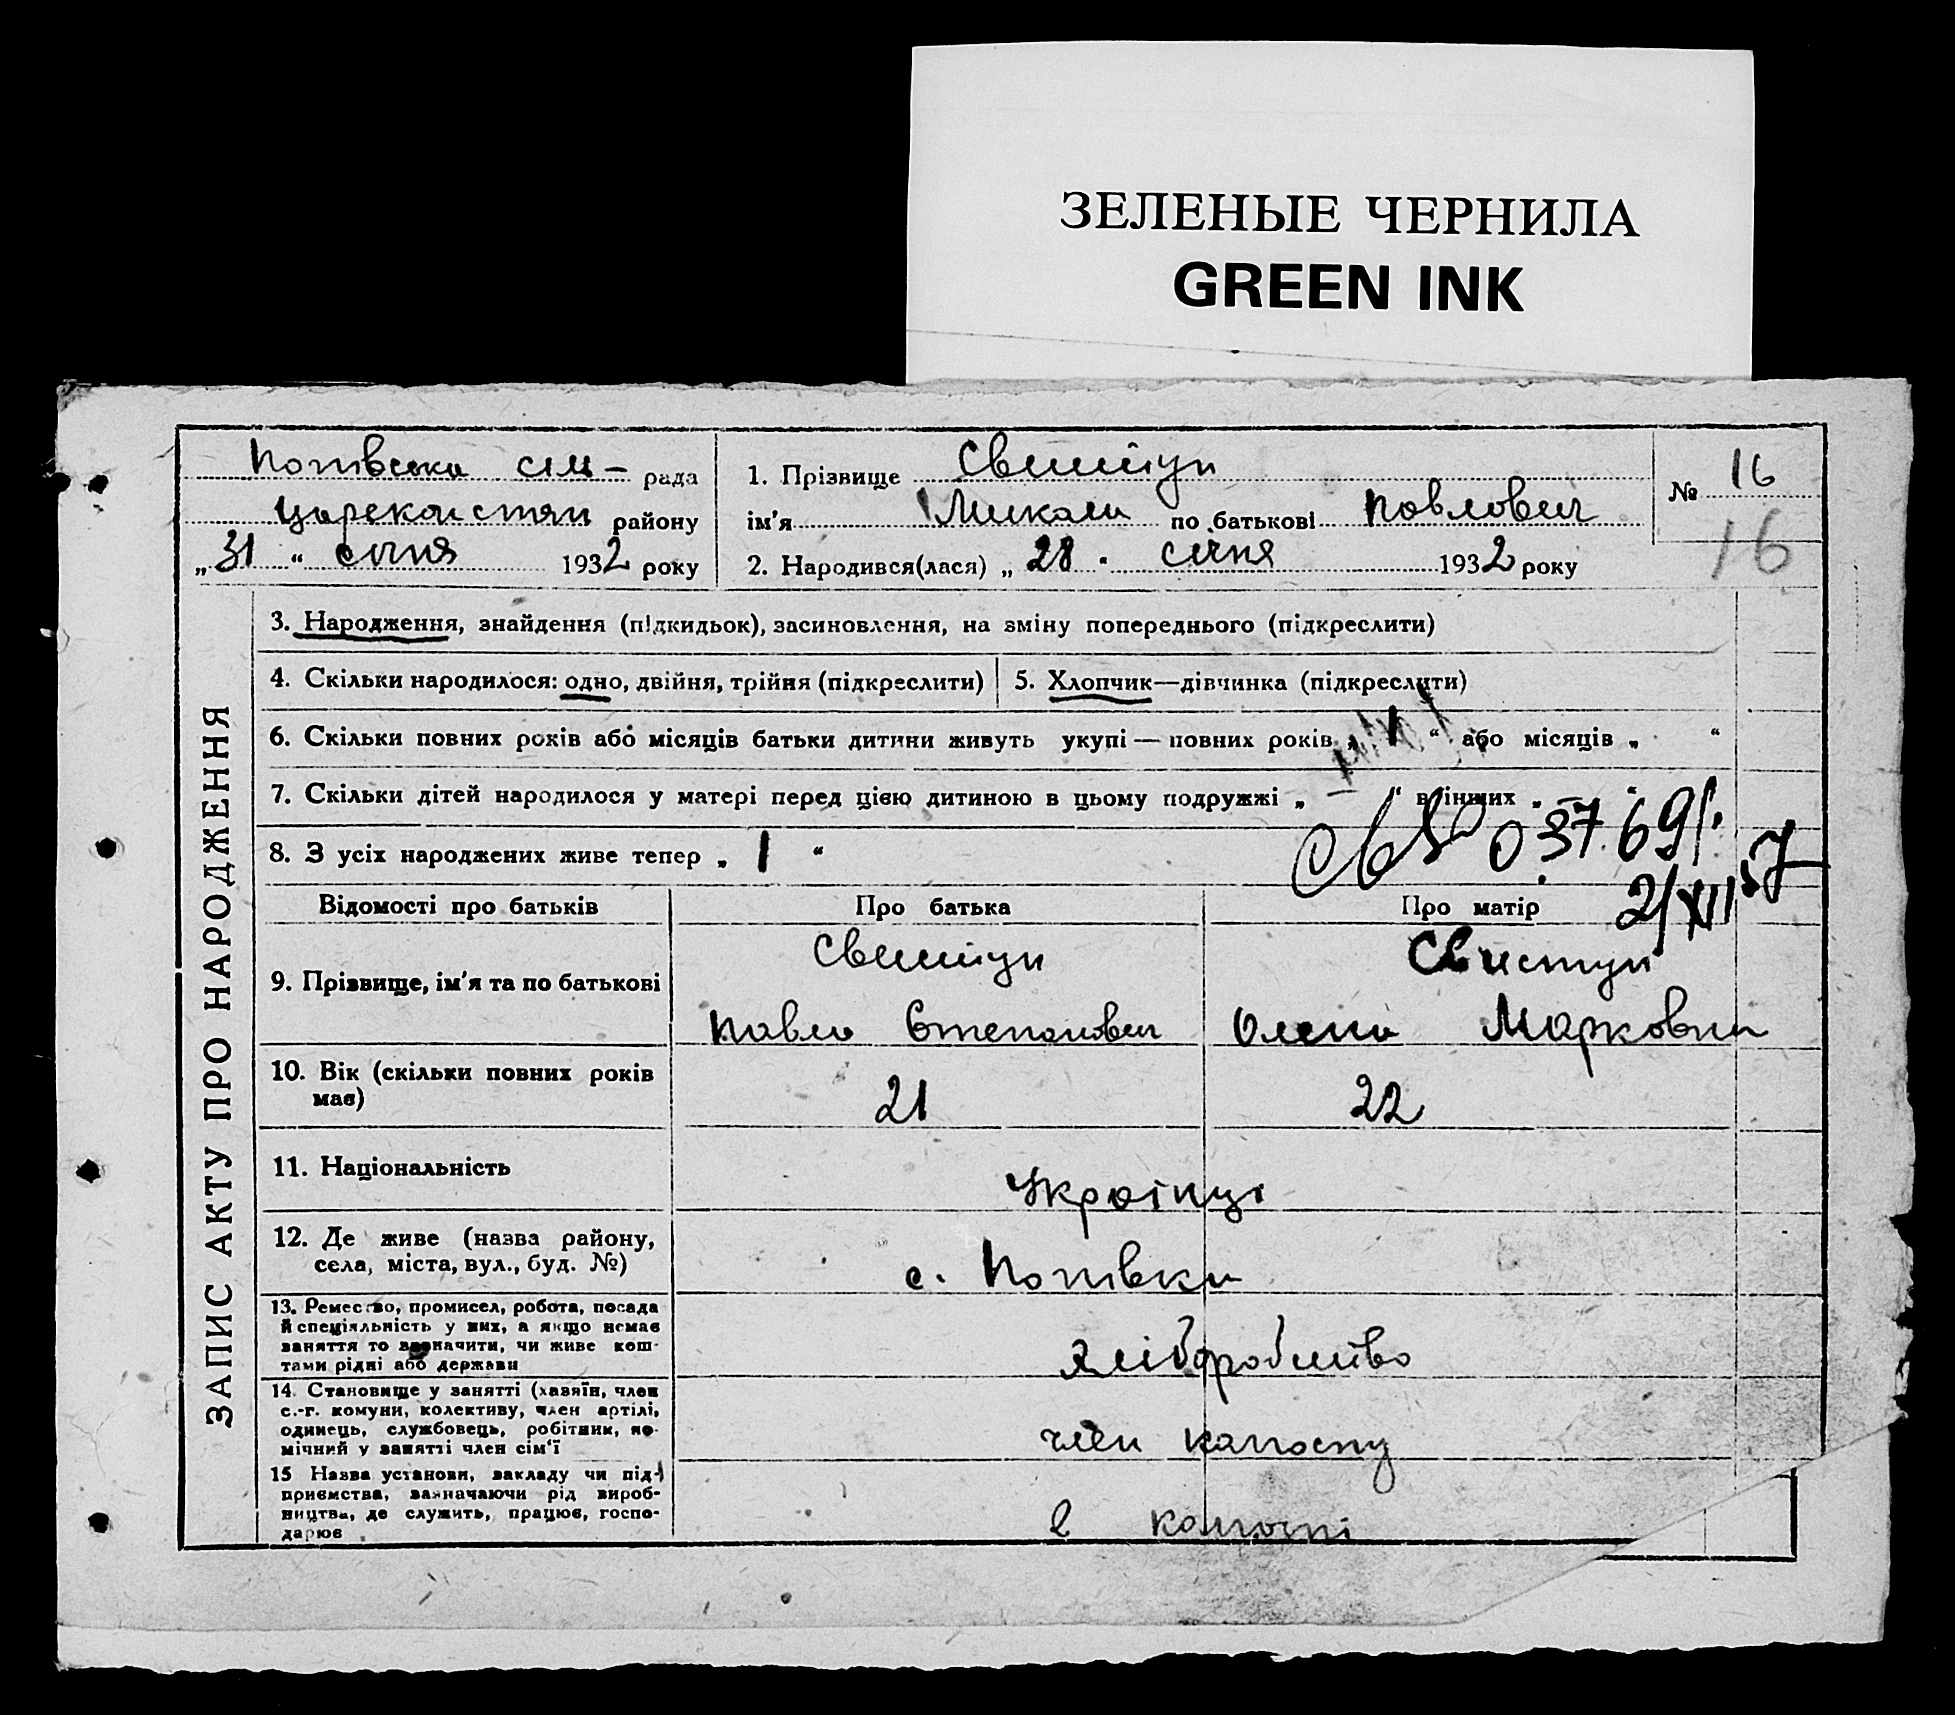 ЗЕЛЕНЫЕ ЧЕРНИЛА
GREEN INK
Попівська сіль- рада
району
„31“ січня 1932 року
1. Прізвище Свистун
ім'я Микола по батькові Павлович
2. Народився(лася) „28“ січня 1932 року
№ 16
16
ЗАПИС АКТУ ПРО НАРОДЖЕННЯ
3. Народження, знайдення (підкидьок), засиновлення, на зміну попереднього (підкреслити)
4. Скільки народилося: одно, двійня, трійня (підкреслити)
5. Хлопчик—дівчинка (підкреслити)
6. Скільки повних років або місяців батьки дитини живуть укупі — повних років „1“ або місяців „ “
7. Скільки дітей народилося у матері перед цією дитиною в цьому подружжі „—“ в інших „—“
8. З усіх народжених живе тепер „1“
037691
2/XII 57
Відомості про батьків
Про батька
Про матір
9. Прізвище, ім'я та по батькові
Свистун
Павло Степанович
Свистун
Олена Марковна
10. Вік (скільки повних років
має)
21
22
11. Національність
Українці
12. Де живе (назва району,
села, міста, вул., буд. №)
с. Попівка
13. Ремество, промисел, робота, посада
й спеціяльність у них, а якщо немає
заняття то зазначити, чи живе кош-
тами рідні або держави
хліборобство
14. Становище у занятті (хазяїн, член
с.-г. комуни, колективу, член артілі,
одинець, службовець, робітник, по-
мічний у занятті член сім'ї
член колгоспу
15 Назва установи, закладу чи під-
приємства, зазначаючи рід вироб-
ництва, де служить, працює, госпо-
дарює
в колгоспі